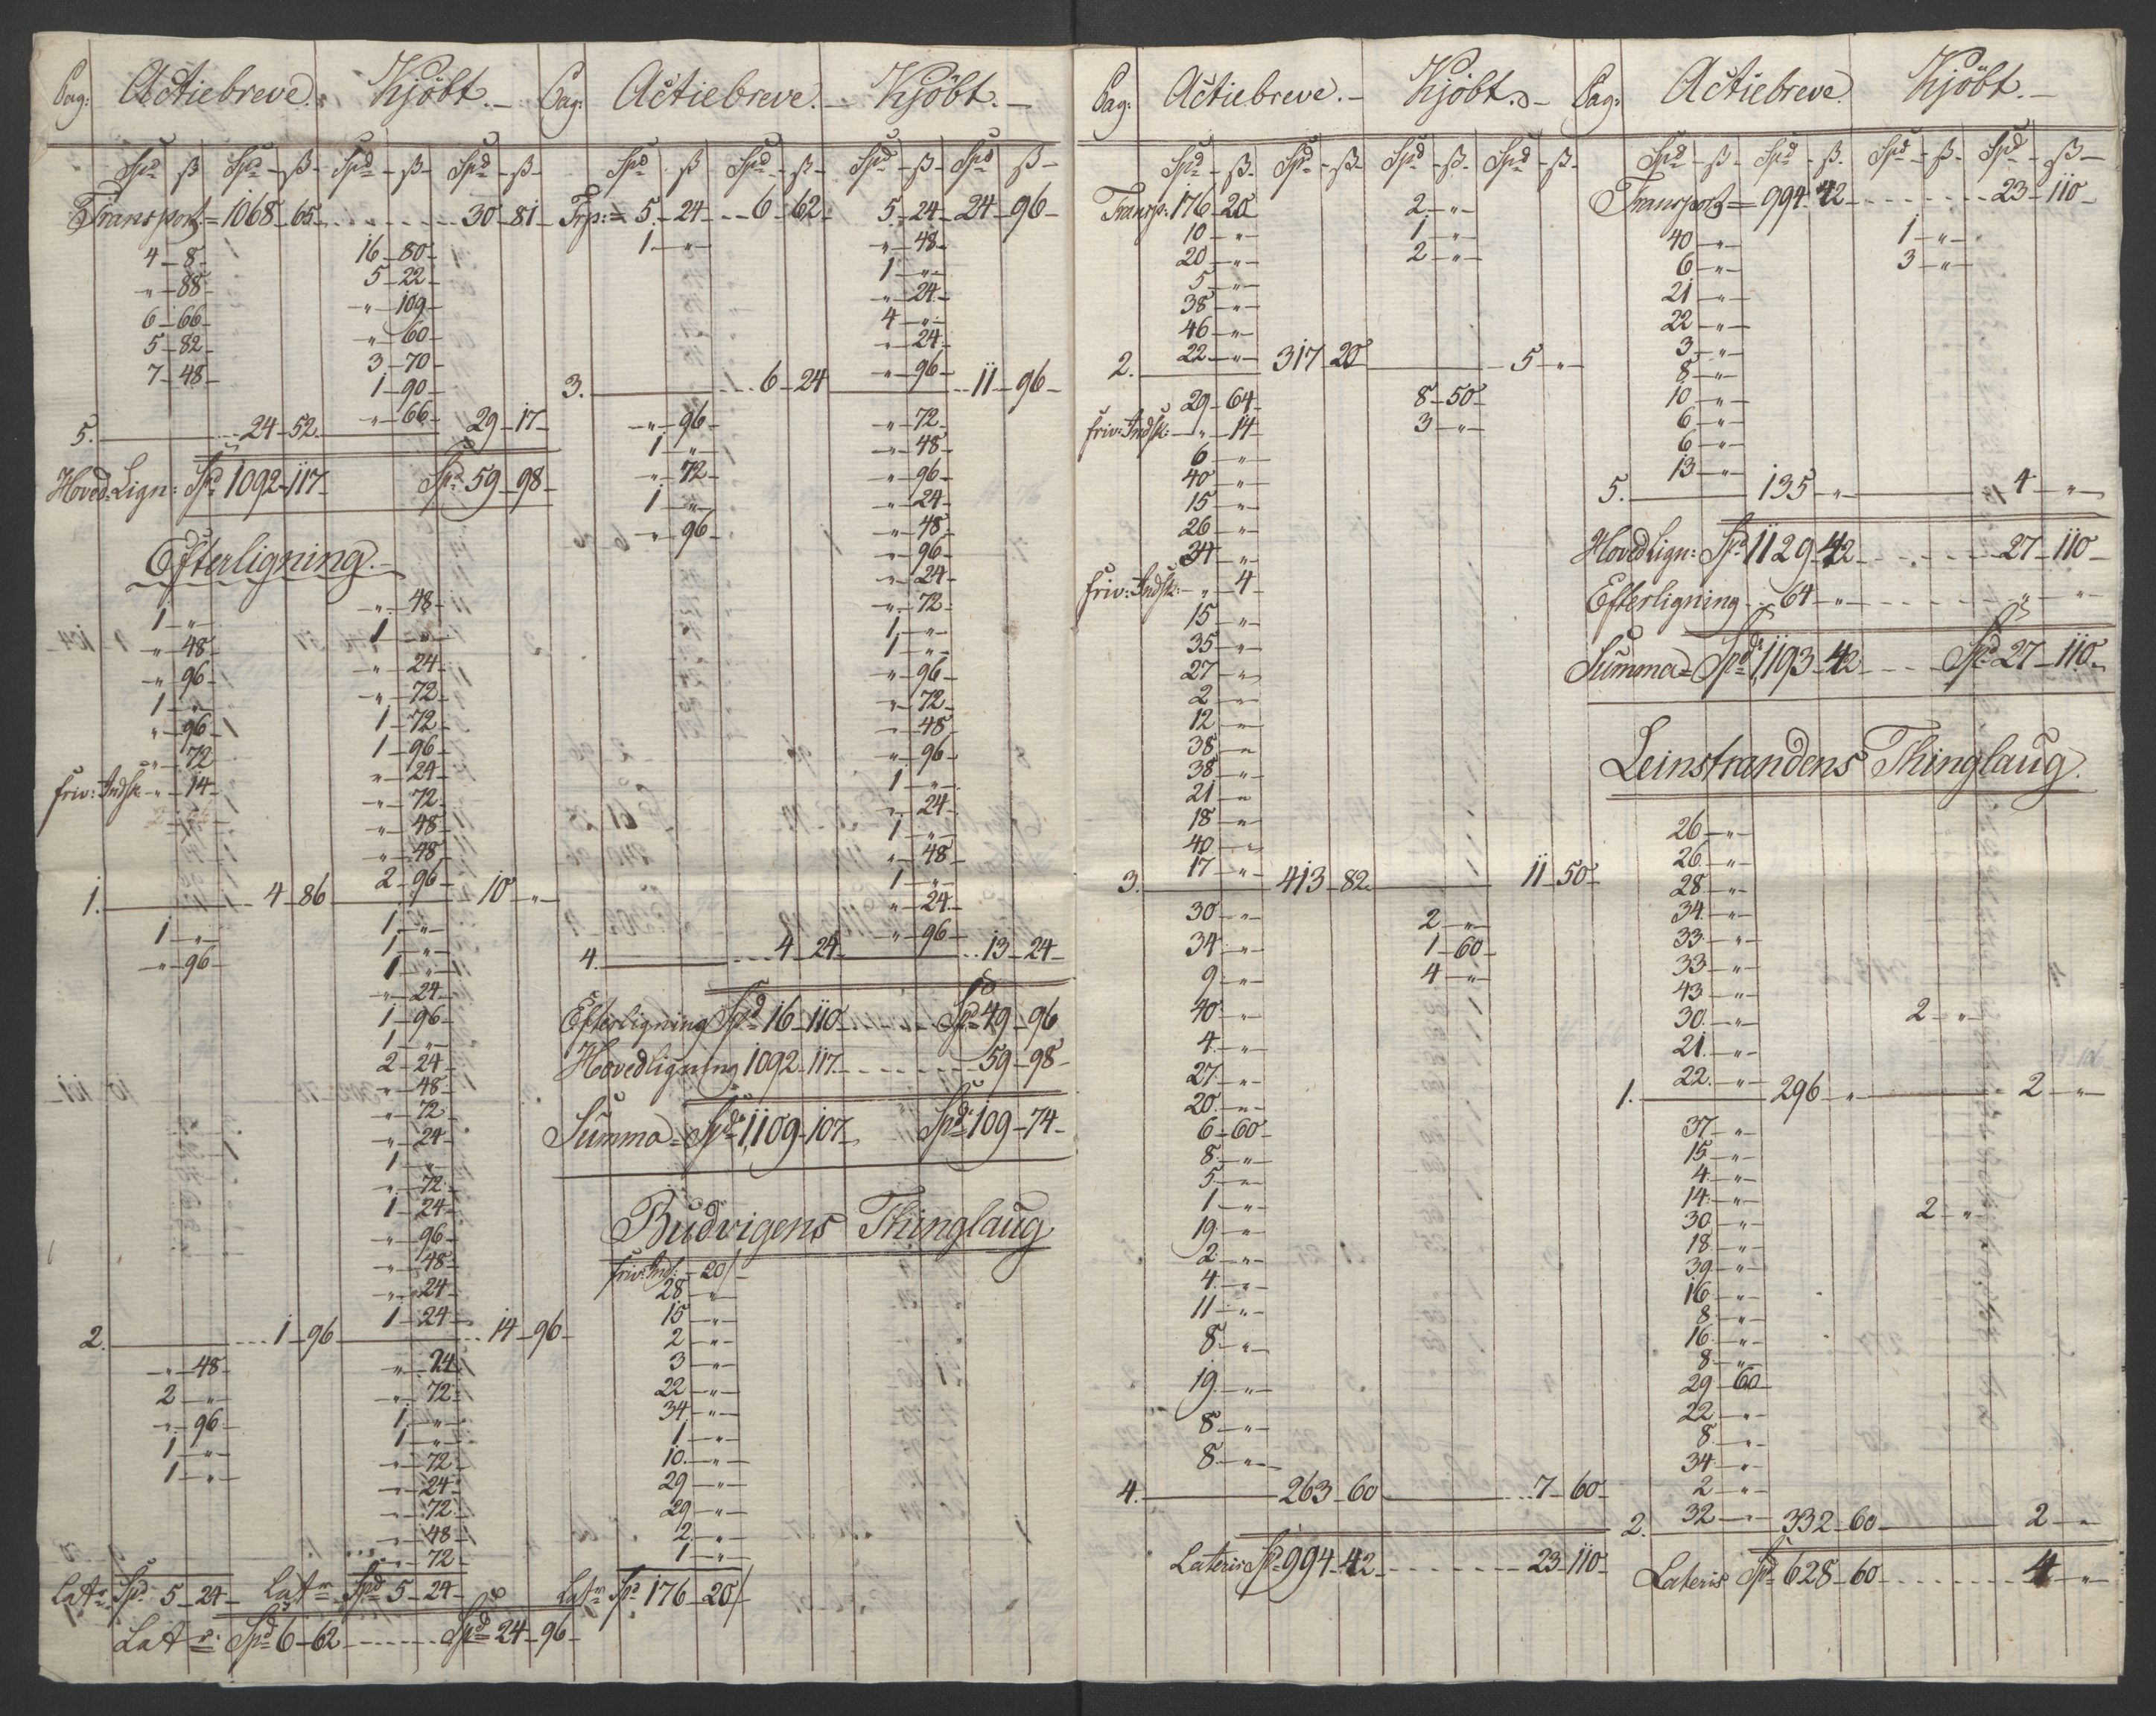 Pag: Actiebreve. Kjöbt.
Spd ß Spd ß Spd ß Spd ß
Transport = 1068 - 65 - 30 - 81
4 - 8 16 - 80
" - 88 5 - 22
" - 109
6 - 66 " - 60
5 - 82 3 - 70
7 - 48 1 - 90
" - 66
5. 24 - 52 29 - 17
Hoved Lign: Spd 1092 - 117 Spd 59 - 98
Efterligning.
" - 48
1 - " 1 - "
" - 48 " - 24
" - 96 " - 72
1 - " 1 - 72
" - 96 1 - 96
" - 72 " - 24
friv: Indsk: " - 14 " - 72
" - 48
" - 48
2 - 96
1. 4 - 86 10 - "
1 - " 1 - "
" - 96 1 - "
1 - "
" - 24
1 - 96
1 - "
2 - 24
" - 48
" - 72
" - 24
1 - "
" - 72
1 - 24
" - 96
" - 48
" - 24
1 - 24
2. 1 - 96 14 - 96
" - 48 " - 24
2 - " " - 72
" - 96 1 - "
1 - " 1 - "
1 - " " - 72
" - 24
" - 72
" - 48
" - 72
Latr. Spd 5 - 24 Latr Spd 5 - 24
Latr: Spd 6 - 62 Spd 24 - 96
Pag: Actiebreve. Kjöbt.
Spd ß Spd ß Spd ß Spd ß
Trp: = 5 - 24 - 6 - 62 5 - 24 - 24 - 96
1 - " " - 48
1 - "
" - 24
4 - "
" - 24
" - 96
3. 6 - 24 11 - 96
" - 96 " - 72
1 - " " - 48
" - 72 " - 96
1 - " " - 24
" - 96 " - 48
" - 96
" - 24
" - 72
1 - "
1 - "
" - 96
" - 72
" - 48
" - 96
1 - "
" - 24
1 - "
" - 48
1 - "
" - 24
" - 96
4. 4 - 24 13 - 24
Efterligning Spd 16 - 110 Spd 49 - 96
Hovedligning 1092 - 117 59 - 98
Summa = Spd 1,109 - 107 Spd 109 - 74
Budvigens Thinglaug
friv: Ind: - 20
28 - "
15 - "
2 - "
3 - "
22 - "
34 - "
1 - "
10 - "
29 - "
29 - "
2 - "
1 - "
Latr Spd 176 - 20
Pag: Actiebreve. Kjöbt.
Spd ß Spd ß Spd ß Spd ß
Transp: 176 - 20 2 - "
10 - " 1 - "
20 - " 2 - "
5 - "
38 - "
46 - "
22 - "
2. 317 - 20 5 - "
29 - 64 8 - 50
friv: Indsk: " - 14 3 - "
6 - "
40 - "
15 - "
26 - "
34 - "
friv: Indsk: " - 4
15 - "
35 - "
27 - "
2 - "
12 - "
38 - "
38 - "
21 - "
18 - "
40 - "
17 - "
3. 413 - 82 11 - 50
30 - " 2 - "
34 - " 1 - 60
9 - " 4 - "
40 - "
4 - "
27 - "
20 - "
6 - 60
8 - "
5 - "
1 - "
19 - "
2 - "
4 - "
11 - "
8 - "
19 - "
8 - "
8 - "
4. 263 - 60 7 - 60
Lateris Spd 994 - 42 23 - 110
Pag: Actiebreve. Kjöbt.
Spd ß Spd ß Spd ß Spd ß
Transport = 994 - 42 23 - 110
40 - " 1 - "
6 - " 3 - "
21 - "
22 - "
3 - "
8 - "
10 - "
6 - "
6 - "
13 - "
5. 135 - " 4 - "
Hoved Lign: Spd 1129 - 42 27 - 110
Efterligning 64 - " " - "
Summa = Spd 1,193 - 42 Spd 27 - 110
Leinstrandens Thinglaug.
26 - "
26 - "
28 - "
34 - "
33 - "
33 - "
43 - "
30 - " 2 - "
21 - "
22 - "
1. 296 - " 2 - "
37 - "
15 - "
4 - "
14 - "
30 - " 2 - "
18 - "
39 - "
16 - "
8 - "
16 - "
8 - "
29 - 60
22 - "
8 - "
34 - "
2 - "
32 - "
2. 332 - 60 2 - "
Lateris Spd 628 - 60 4 - "